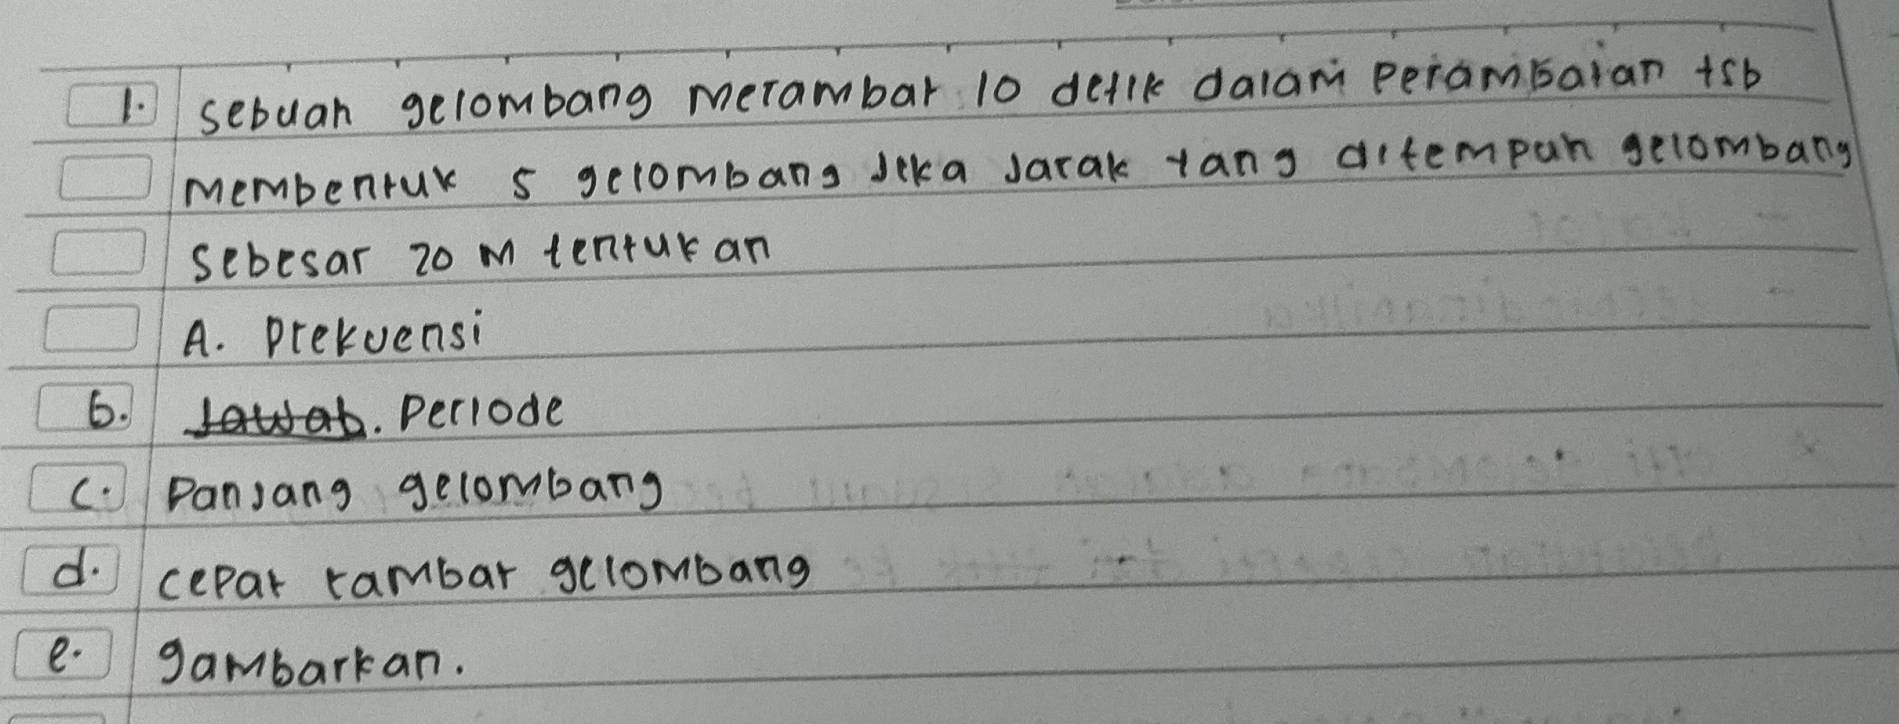 1. sebuah gelombang merambat 10 detik dalam perambatan tsb
membentuk 5 gelombang jika jarak yang ditempuh gelombang
sebesar 20 m tentukan
A. Prekuensi
b. Jawab. Periode
c. Panjang gelombang
d. cepat rambat gelombang
e. gambarkan.